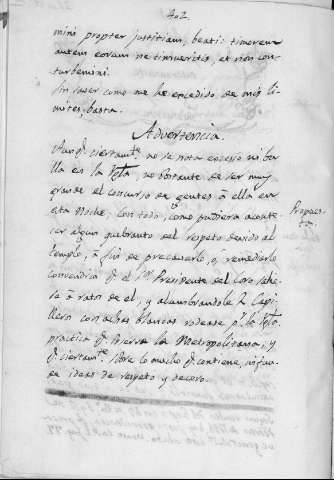 402.
mini propter justitiam, beati: timorem
autem eorum ne timueritis, et non con-
turbemini.
Sin saber como me he excedido de mis li-
mites, basta.
Advertencia.
Aunq.e ciertam.te no se nota exceso ni bu-
lla en la Ygla, no obstante de ser muy
grande el concurso de gentes á ella en
esta Noche, con todo, como pudiera aconte-
cer algun quebranto del respeto devido al
Templo, á fin de precaverlo, y remediarlo
convendria q.e el S.or Presidente del Coro salie-
se á rato de el, y alumbrandole 2 Capi-
lleros con achas blancas rodease p.r la Ygla,
practica q.e observa la Metropolitana, y
q.e ciertam.te sobre lo mucho q.e contiene, infun-
e ideas de respeto y decoro.
Propues-
ta.